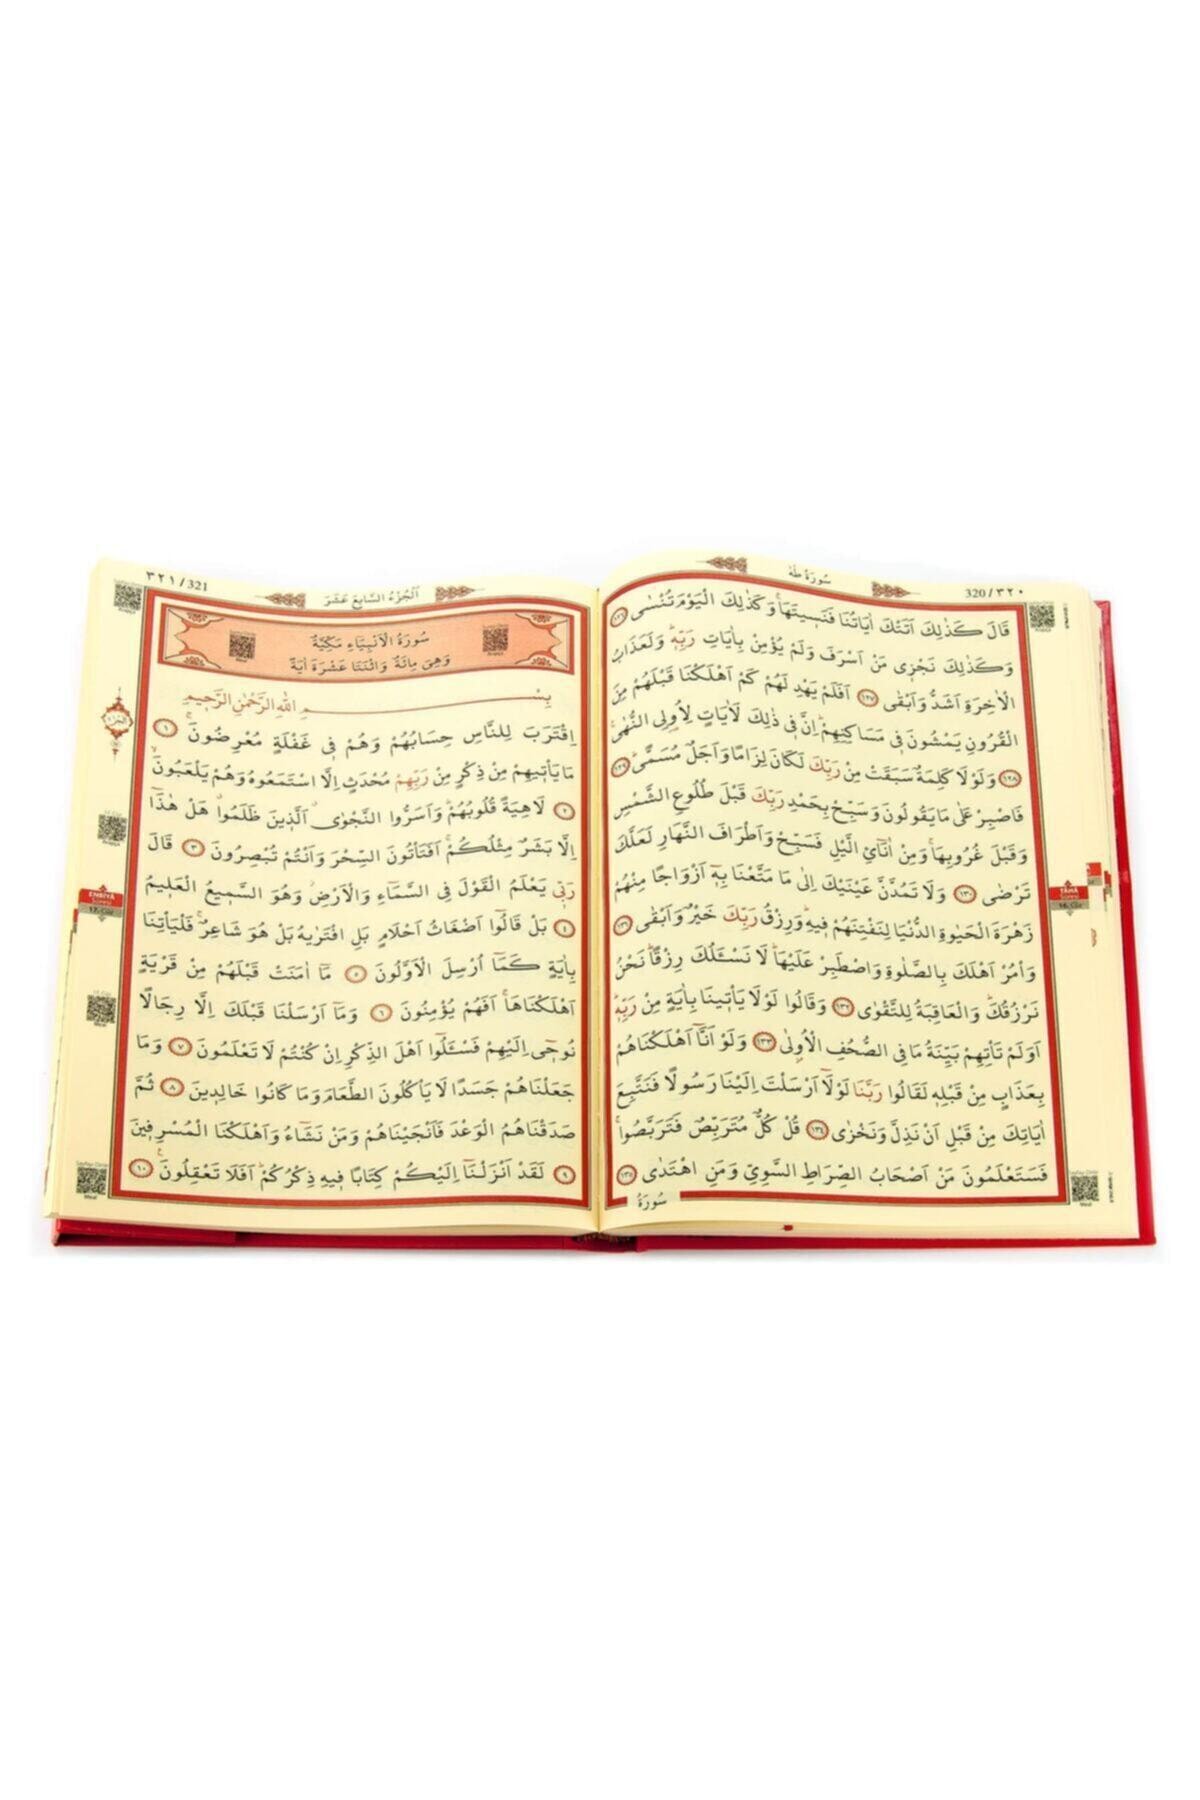 320 / ٣٢٠
سُورَةُ طٰهٰ
قَالَ كَذٰلِكَ اَتَتْكَ اٰيَاتُنَا فَنَس۪يتَهَاۚ وَكَذٰلِكَ الْيَوْمَ تُنْسٰى ﴿١٢٦﴾
وَكَذٰلِكَ نَجْز۪ي مَنْ اَسْرَفَ وَلَمْ يُؤْمِنْ بِاٰيَاتِ رَبِّه۪ۜ وَلَعَذَابُ
الْاٰخِرَةِ اَشَدُّ وَاَبْقٰى ﴿١٢٧﴾ اَفَلَمْ يَهْدِ لَهُمْ كَمْ اَهْلَكْنَا قَبْلَهُمْ مِنَ
الْقُرُونِ يَمْشُونَ ف۪ي مَسَاكِنِهِمْۜ اِنَّ ف۪ي ذٰلِكَ لَاٰيَاتٍ لِاُو۬لِي النُّهٰى۟
﴿١٢٨﴾ وَلَوْلَا كَلِمَةٌ سَبَقَتْ مِنْ رَبِّكَ لَكَانَ لِزَامًا وَاَجَلٌ مُسَمًّىۜ ﴿١٢٩﴾
فَاصْبِرْ عَلٰى مَا يَقُولُونَ وَسَبِّحْ بِحَمْدِ رَبِّكَ قَبْلَ طُلُوعِ الشَّمْسِ
وَقَبْلَ غُرُوبِهَاۚ وَمِنْ اٰنَٓائِ الَّيْلِ فَسَبِّحْ وَاَطْرَافَ النَّهَارِ لَعَلَّكَ
تَرْضٰى ﴿١٣٠﴾ وَلَا تَمُدَّنَّ عَيْنَيْكَ اِلٰى مَا مَتَّعْنَا بِه۪ٓ اَزْوَاجًا مِنْهُمْ
زَهْرَةَ الْحَيٰوةِ الدُّنْيَا لِنَفْتِنَهُمْ ف۪يهِۜ وَرِزْقُ رَبِّكَ خَيْرٌ وَاَبْقٰى ﴿١٣١﴾
وَأْمُرْ اَهْلَكَ بِالصَّلٰوةِ وَاصْطَبِرْ عَلَيْهَاۜ لَا نَسْـَٔلُكَ رِزْقًاۜ نَحْنُ
نَرْزُقُكَۜ وَالْعَاقِبَةُ لِلتَّقْوٰى ﴿١٣٢﴾ وَقَالُوا لَوْلَا يَأْت۪ينَا بِاٰيَةٍ مِنْ رَبِّه۪ۜ
اَوَلَمْ تَأْتِهِمْ بَيِّنَةُ مَا فِي الصُّحُفِ الْاُو۫لٰى ﴿١٣٣﴾ وَلَوْ اَنَّٓا اَهْلَكْنَاهُمْ
بِعَذَابٍ مِنْ قَبْلِه۪ لَقَالُوا رَبَّنَا لَوْلَٓا اَرْسَلْتَ اِلَيْنَا رَسُولًا فَنَتَّبِعَ
اٰيَاتِكَ مِنْ قَبْلِ اَنْ نَذِلَّ وَنَخْزٰى ﴿١٣٤﴾ قُلْ كُلٌّ مُتَرَبِّصٌ فَتَرَبَّصُواۚ
فَسَتَعْلَمُونَ مَنْ اَصْحَابُ الصِّرَاطِ السَّوِيِّ وَمَنِ اهْتَدٰى ﴿١٣٥﴾
سُورَةُ
TÂHÂ
16. Cüz
اَلْجُزْءُ السَّابِعَ عَشَرَ
٣٢١ / 321
سُورَةُ الْاَنْبِيَاءِ مَكِّيَّةٌ
وَهِيَ مِائَةٌ وَاثْنَتَا عَشْرَةَ اٰيَةً
بِسْمِ اللّٰهِ الرَّحْمٰنِ الرَّح۪يمِ
اِقْتَرَبَ لِلنَّاسِ حِسَابُهُمْ وَهُمْ ف۪ي غَفْلَةٍ مُعْرِضُونَۚ ﴿١﴾
مَا يَأْت۪يهِمْ مِنْ ذِكْرٍ مِنْ رَبِّهِمْ مُحْدَثٍ اِلَّا اسْتَمَعُوهُ وَهُمْ يَلْعَبُونَۙ
﴿٢﴾ لَاهِيَةً قُلُوبُهُمْۜ وَاَسَرُّوا النَّجْوٰىۗ اَلَّذ۪ينَ ظَلَمُواۗ هَلْ هٰذَٓا
اِلَّا بَشَرٌ مِثْلُكُمْۚ اَفَتَأْتُونَ السِّحْرَ وَاَنْتُمْ تُبْصِرُونَ ﴿٣﴾ قَالَ
رَبّ۪ي يَعْلَمُ الْقَوْلَ فِي السَّمَٓاءِ وَالْاَرْضِۘ وَهُوَ السَّم۪يعُ الْعَل۪يمُ
﴿٤﴾ بَلْ قَالُٓوا اَضْغَاثُ اَحْلَامٍ بَلِ افْتَرٰيهُ بَلْ هُوَ شَاعِرٌۚ فَلْيَأْتِنَا
بِاٰيَةٍ كَمَٓا اُرْسِلَ الْاَوَّلُونَ ﴿٥﴾ مَٓا اٰمَنَتْ قَبْلَهُمْ مِنْ قَرْيَةٍ
اَهْلَكْنَاهَاۚ اَفَهُمْ يُؤْمِنُونَ ﴿٦﴾ وَمَٓا اَرْسَلْنَا قَبْلَكَ اِلَّا رِجَالًا
نُوح۪ٓي اِلَيْهِمْ فَسْـَٔلُٓوا اَهْلَ الذِّكْرِ اِنْ كُنْتُمْ لَا تَعْلَمُونَ ﴿٧﴾ وَمَا
جَعَلْنَاهُمْ جَسَدًا لَا يَأْكُلُونَ الطَّعَامَ وَمَا كَانُوا خَالِد۪ينَ ﴿٨﴾ ثُمَّ
صَدَقْنَاهُمُ الْوَعْدَ فَاَنْجَيْنَاهُمْ وَمَنْ نَشَٓاءُ وَاَهْلَكْنَا الْمُسْرِف۪ينَ
﴿٩﴾ لَقَدْ اَنْزَلْنَٓا اِلَيْكُمْ كِتَابًا ف۪يهِ ذِكْرُكُمْۜ اَفَلَا تَعْقِلُونَ۟ ﴿١٠﴾
ENBİYÂ
17. Cüz